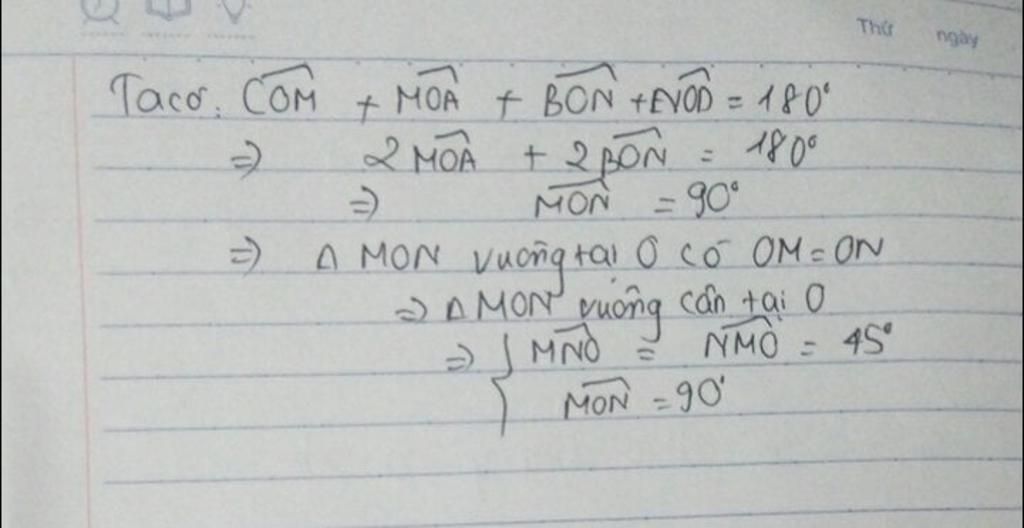 Thứ ngày
Ta có: $\widehat{COM}$ + $\widehat{MOA}$ + $\widehat{BON}$ + $\widehat{NOD}$ = 180°
=> 2$\widehat{MOA}$ + 2$\widehat{BON}$ = 180°
=> $\widehat{MON}$ = 90°
=> Δ MON vuông tại O có OM = ON
=> Δ MON vuông cân tại O
=> { $\widehat{MNO}$ = $\widehat{NMO}$ = 45°
$\widehat{MON}$ = 90°